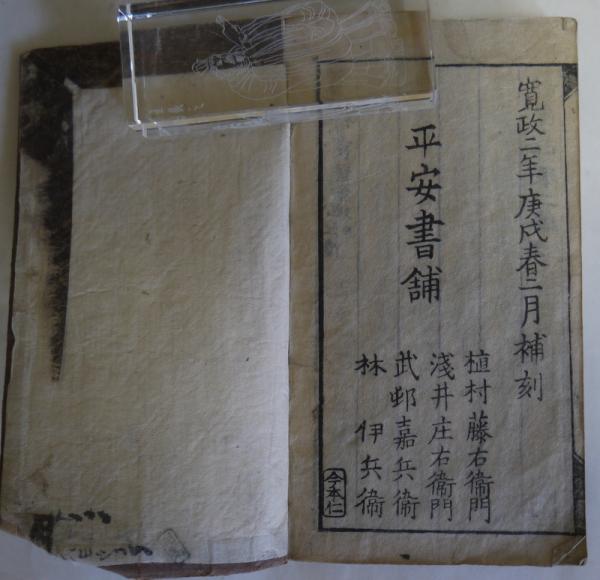 寛政二年庚戌春二月補刻
平安書舗
植村藤右衛門
淺井庄右衛門
武邨嘉兵衛
林 伊兵衛
今本仁